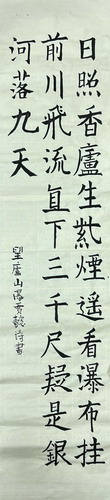 日照香廬生紫煙遙看瀑布挂
前川飛流直下三千尺疑是銀
河落九天
望廬山瀑布